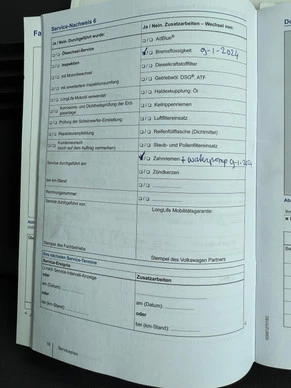 Service-Nachweis 6
Ja / Nein. Durchgeführt wurde:
Ölwechsel-Service
Inspektion
mit Motorölwechsel
mit erweitertem Inspektionsumfang
LongLife Motoröl verwendet
Korrosions- und Dichtheitsprüfung der Erdgasanlage
Prüfung der Scheinwerfer-Einstellung
Reparaturempfehlung
Kundenwunsch
(noch auf dem Auftrag vermerken)
Service durchgeführt am:
bei km-Stand:
Rechnungsnummer:
Service durchgeführt von:
Stempel des Fachbetriebs
Ja / Nein. Zusatzarbeiten – Wechsel von:
AdBlue®
Bremsflüssigkeit 9-1-2024
Dieselkraftstofffilter
Getriebeöl: DSG®, ATF
Haldexkupplung: Öl
Keilrippenriemen
Luftfiltereinsatz
Reifenfüllflasche (Dichtmittel)
Staub- und Pollenfiltereinsatz
Zahnriemen + waterpomp 9-1-2024
Zündkerzen
LongLife Mobilitätsgarantie:
Stempel des Volkswagen Partners
Ihre nächsten Service-Termine
Service-Ereignis
nach Service-Intervall-Anzeige
oder
am (Datum):
oder
bei (km-Stand):
Zusatzarbeiten
am (Datum):
oder
bei (km-Stand):
Serviceplan